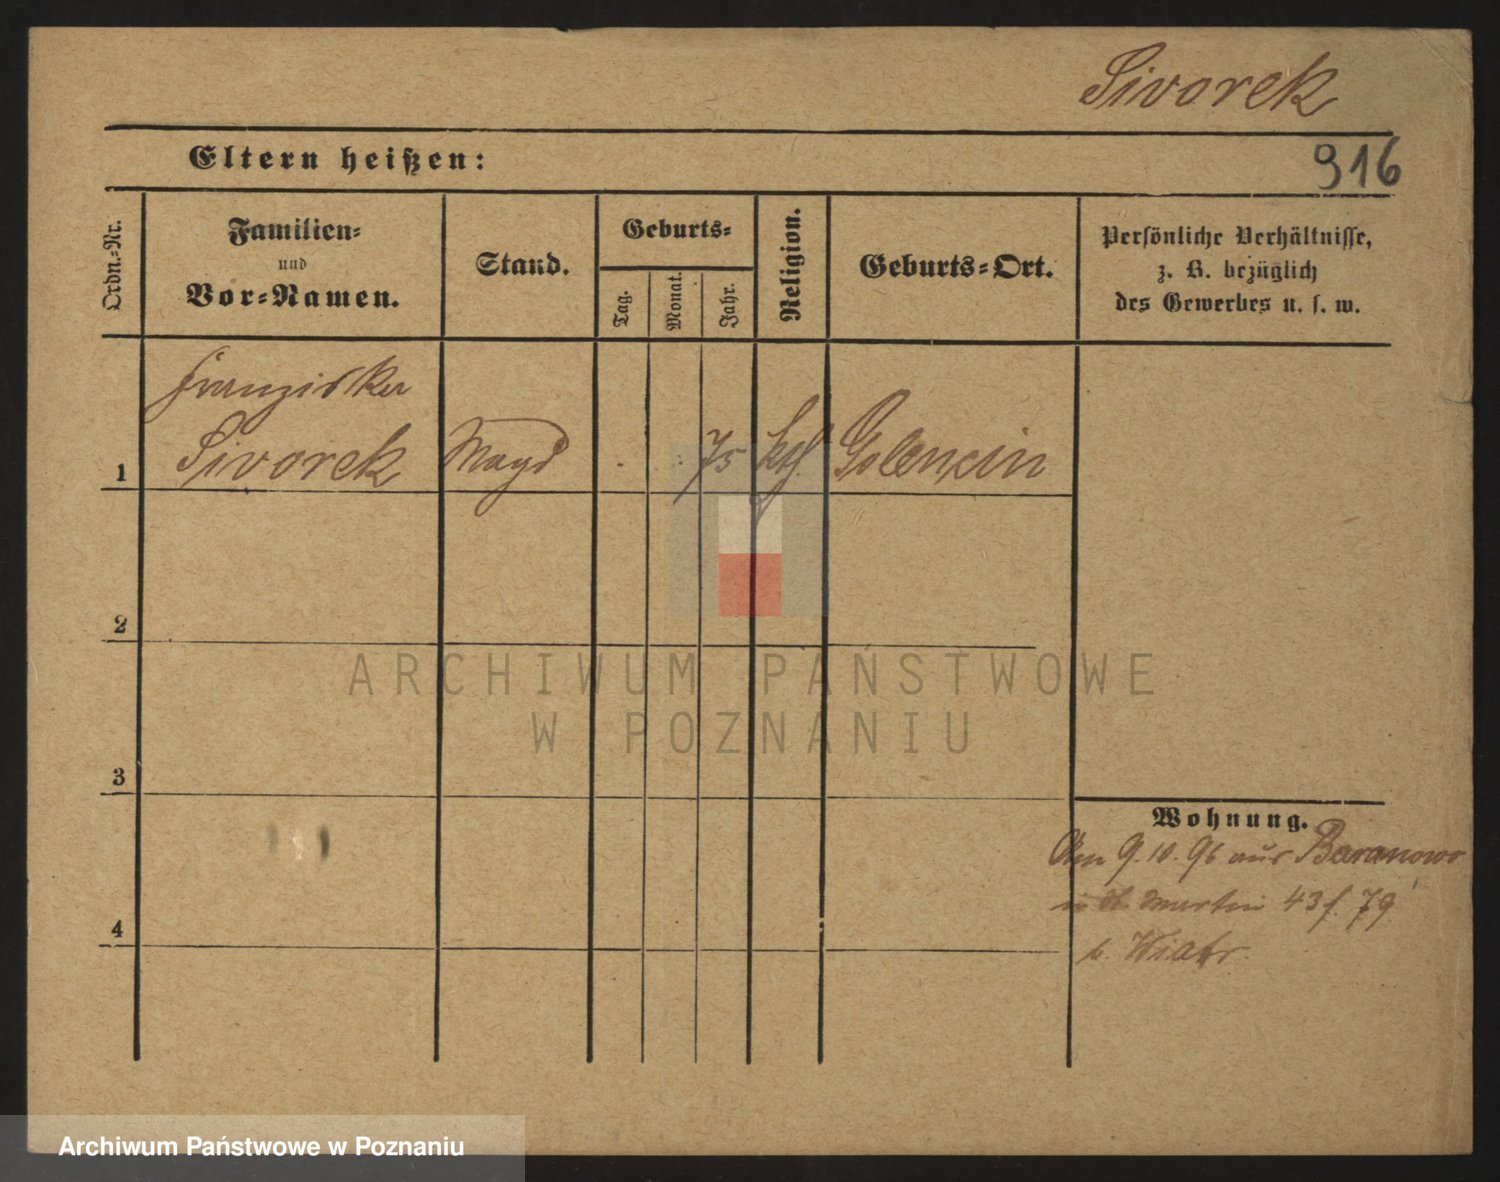 Sivorek
Eltern heißen:
916
Ordn.-Nr.
Familien-
und
Vor-Namen.
Stand.
Geburts-
Tag.
Monat.
Jahr.
Religion.
Geburts-Ort.
Persönliche Verhältnisse,
z. B. bezüglich
des Gewerbes u. s. w.
Franziska
1 Sivorek Magd 75 kth. Golencin
2
3
4
Wohnung.
Am 9.10.96 aus Baranowo
St. Martin 43 f. 79
b. Wiatr.
ARCHIWUM PAŃSTWOWE
W POZNANIU
Archiwum Państwowe w Poznaniu